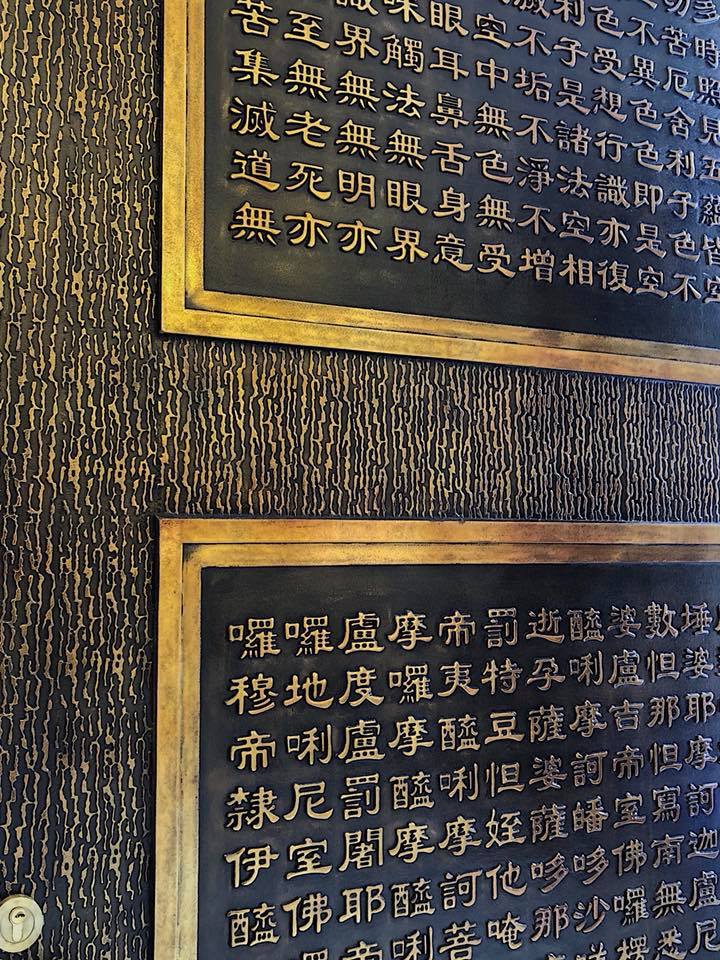 多時照見五蘊皆空
切苦厄舍利子色不
不異色色即是空
色受想行識亦復
利子是諸法空相
滅不垢不淨不增
空中無色無受
眼耳鼻舌身意
味觸法無眼界
識界無無明亦
至無老死亦
苦集滅道無
埵婆耶摩訶迦盧尼
數怛那怛寫南無悉
婆盧吉帝室佛囉楞
醯唎摩訶皤哆沙
逝孕薩婆薩哆那
罰特豆怛姪他唵
帝夷醯唎摩訶菩
摩囉摩醯摩醯唎
盧度盧罰闍耶帝
囉地唎尼室佛囉
囉穆帝隸伊醯